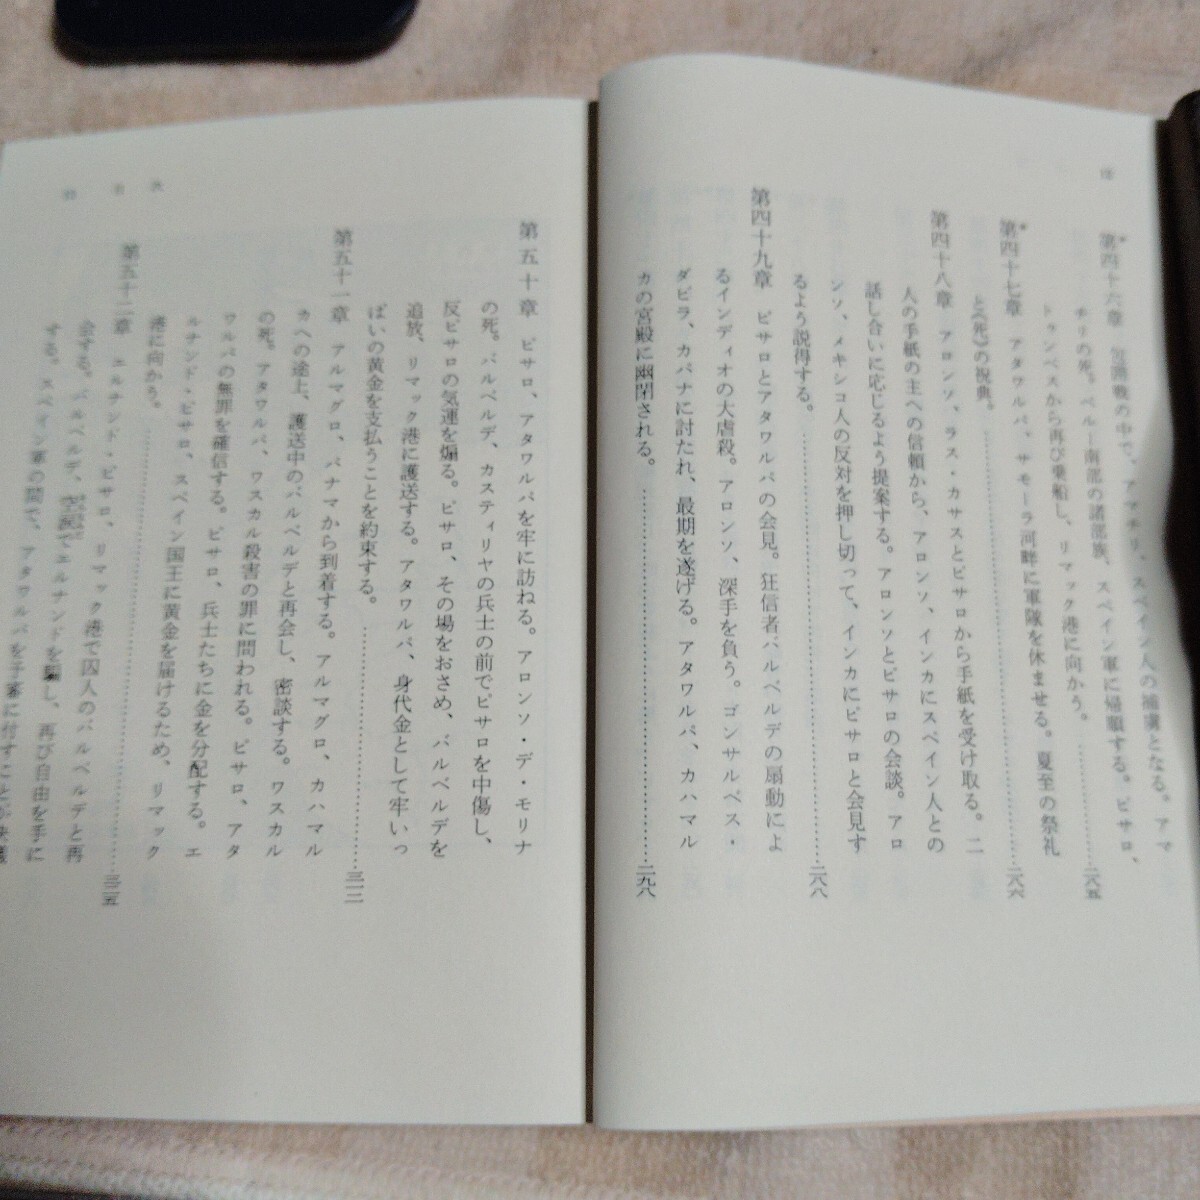 第四十六章 包囲戦の中で、アマチリ、スペイン人の捕虜となる。アマ
チリの死。ペルー南部の諸部族、スペイン軍に帰順する。ピサロ、
トゥンベスから再び乗船し、リマック港に向かう。……二八五
第四十七章 アタワルパ、サモーラ河畔に軍隊を休ませる。夏至の祭礼
と《死》の祝典。……二八六
第四十八章 アロンソ、ラス・カサスとピサロから手紙を受け取る。二
人の手紙の主への信頼から、アロンソ、インカにスペイン人との
話し合いに応じるよう提案する。アロンソとピサロの会談。アロ
ンソ、メキシコ人の反対を押し切って、インカにピサロと会見す
るよう説得する。……二八八
第四十九章 ピサロとアタワルパの会見。狂信者バルベルデの扇動によ
るインディオの大虐殺。アロンソ、深手を負う。ゴンサルベス・
ダビラ、カパナに討たれ、最期を遂げる。アタワルパ、カハマル
カの宮殿に幽閉される。……二九八
目次
第五十章 ピサロ、アタワルパを牢に訪ねる。アロンソ・デ・モリナ
の死。バルベルデ、カスティリヤの兵士の前でピサロを中傷し、
反ピサロの気運を煽る。ピサロ、その場をおさめ、バルベルデを
追放、リマック港に護送する。アタワルパ、身代金として牢いっ
ぱいの黄金を支払うことを約束する。……三一二
第五十一章 アルマグロ、パナマから到着する。アルマグロ、カハマル
カへの途上、護送中のバルベルデと再会し、密談する。ワスカル
の死。アタワルパ、ワスカル殺害の罪に問われる。ピサロ、アタ
ワルパの無罪を確信する。ピサロ、兵士たちに金を分配する。エ
ルナンド・ピサロ、スペイン国王に黄金を届けるため、リマック
港に向かう。……三二五
第五十二章 エルナンド・ピサロ、リマック港で囚人のバルベルデと再
会する。バルベルデ、空涙でエルナンドを騙し、再び自由を手に
する。スペイン軍の間で、アタワルパを予審に付すことが決議